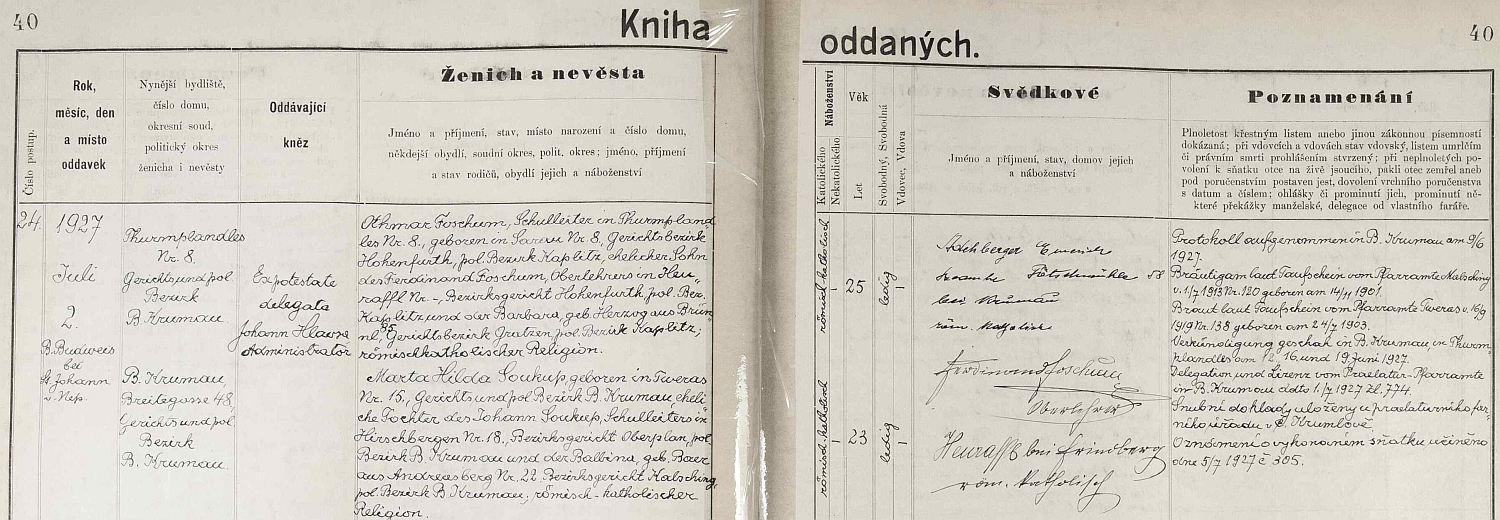 40
Kniha
oddaných.
40
Číslo postup.
Rok,
měsíc, den
a místo
oddavek
Nynější bydliště,
číslo domu,
okresní soud,
politický okres
ženicha i nevěsty
Oddávající
kněz
Ženich a nevěsta
Jméno a příjmení, stav, místo narození a číslo domu,
někdejší obydlí, soudní okres, polit. okres; jméno, příjmení
a stav rodičů, obydlí jejich a náboženství
Náboženství
Katolického
Nekatolického
Věk
Let
Svobodný, Svobodná
Vdovec, Vdova
Svědkové
Jméno a příjmení, stav, domov jejich
a náboženství
Poznamenání
Plnoletost křestným listem anebo jinou zákonnou písemností
dokázaná; při vdovcích a vdovách stav vdovský, listem umrlčím
či právním smrti prohlášením stvrzený; při neplnoletých po-
volení k sňatku otce na živě jsoucího, pakli otec zemřel aneb
pod poručenstvím postaven jest, dovolení vrchního poručenstva
s datum a číslem; ohlášky či prominutí jich, prominutí ně-
které překážky manželské, delegace od vlastního faráře.
24.
1927
Juli
2.
B. Budweis
bei
St. Johann
v. Nep.
Thurmplandles
Nr. 8,
Gerichts und pol
Bezirk
B. Krumau.
B. Krumau,
Breitegasse 48,
Gerichts und pol.
Bezirk
B. Krumau.
Ex potestate
delegata
Johann
Administrator
Othmar Foschum, Schulleiter in Thurmpland
les Nr. 8., geboren in Sarau Nr. 8, Gerichtsbezirk
Hohenfurth, pol. Bezirk Kaplitz, ehelicher Sohn
des Ferdinand Foschum, Oberlehrers in Heu
raffl Nr. –, Bezirksgericht Hohenfurth, pol. Bez.
Kaplitz und der Barbara, geb. Herzog aus Brün
nl 85, Gerichtsbezirk Gratzen pol. Bezirk Kaplitz;
römischkatholischer Religion.
Marta Hilda Soukup, geboren in Tweras
Nr. 15, Gerichts und pol Bezirk B. Krumau, eheli
che Tochter des Johann Soukup, Schulleiters in
Hirschbergen Nr. 18, Bezirksgericht Oberplan, pol
Bezirk B Krumau und der Balbina, geb. Baer
aus Andreasberg Nr. 22, Bezirksgericht Kalsching,
pol. Bezirk B Krumau; römisch-katholischer
Religion.
römisch katholisch
25
ledig
römisch-katholisch
23
ledig
Aschberger
bei Krumau
röm. katholisch
Ferdinand Foschum
Oberlehrer
Heuraffl bei Friedberg
röm. katholisch
Protokoll aufgenommen in B. Krumau am 9/6
1927.
Bräutigam laut Taufschein vom Pfarramte Malsching
v. 1./7 1913 Nr. 120 geboren am 14/11 1901.
Braut laut Taufschein vom Pfarramte Tweras v. 16/9
1919 Nr. 138 geboren am 24/7 1903.
Verkündigung geschah in B. Krumau, in Thurm-
plandles am 12. 16. und 19. Juni 1927.
Delegation und Lizenz vom Praelatur-Pfarramte
in B. Krumau ddto 1./7 1927 Zl. 774.
Snubní doklady uloženy u praelaturního far-
ního úřadu v Č. Krumlově.
Oznámení o vykonaném sňatku učiněno
dne 5/7 1927 č 305.